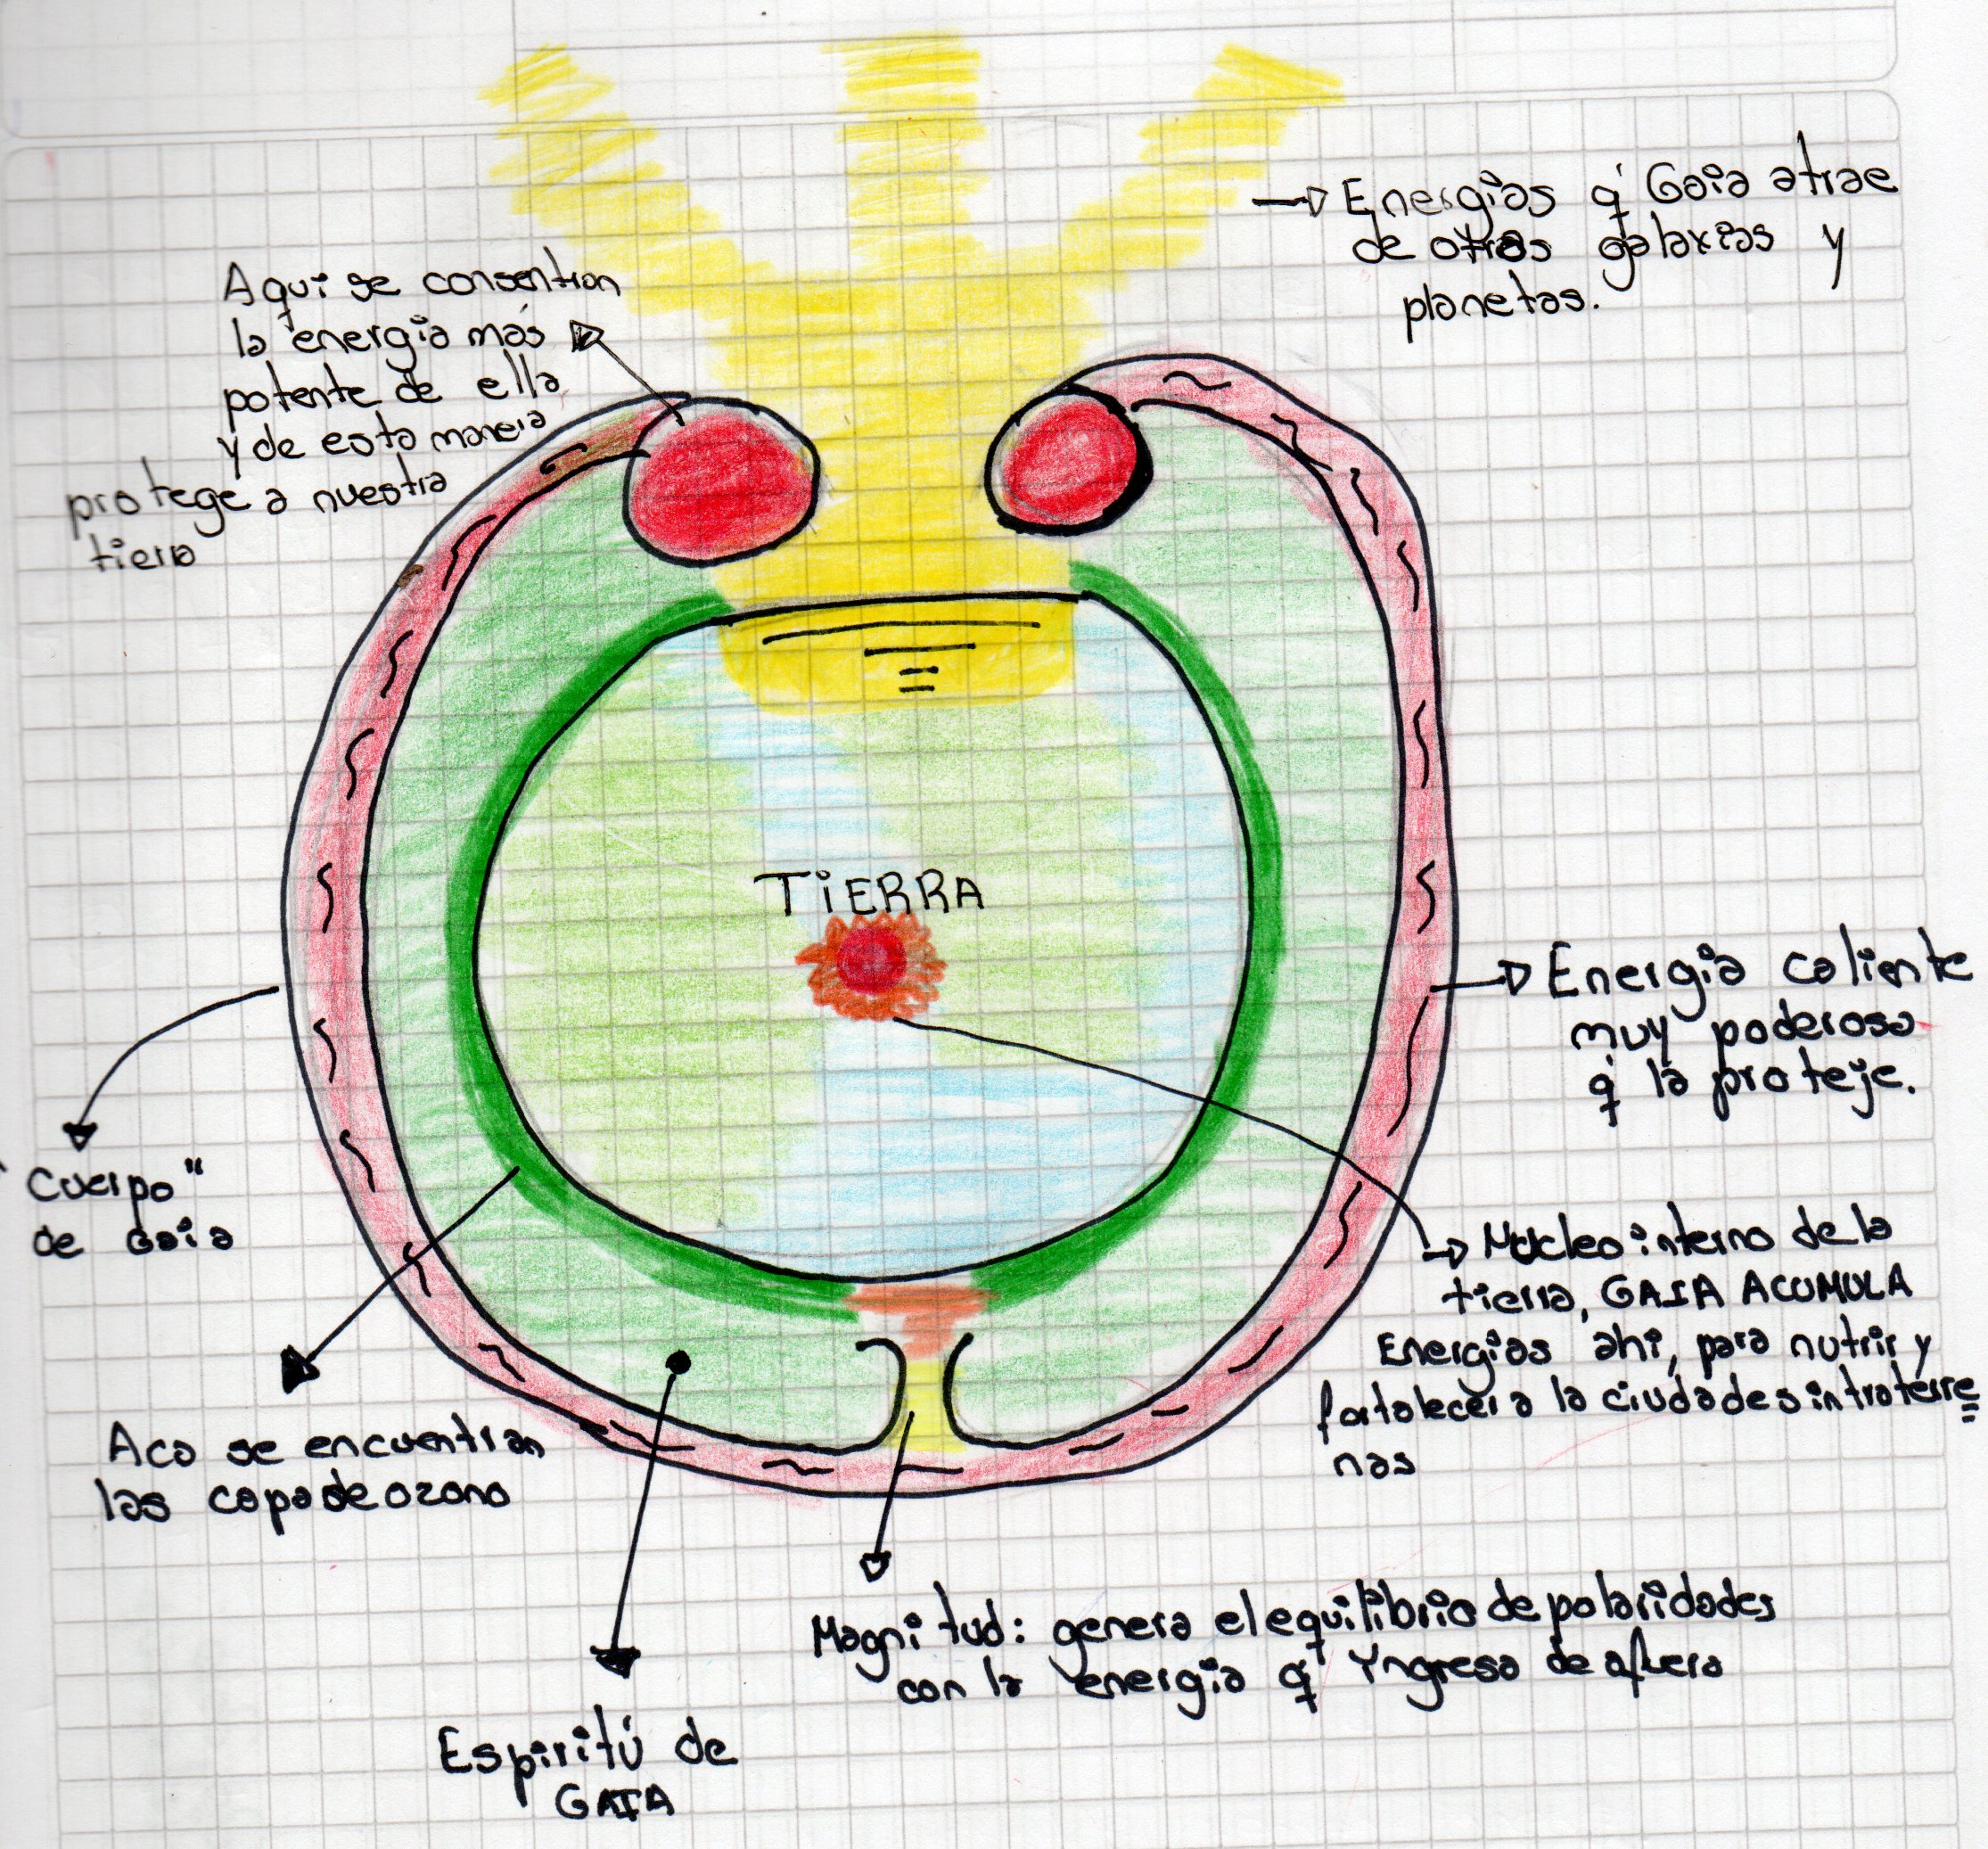 → Energías q' Gaia atrae
de otras galaxias y
planetas.
Aquí se consentran
la energía más
potente de ella
y de esta manera
protege a nuestra
tierra
TiERRA
→ Energia caliente
muy poderosa
q' la proteje.
"Cuerpo"
de Gaia
→ Nucleo interno de la
tierra, GAIA ACUMULA
Energias ahi, para nutrir y
fortalecer a la ciudades intraterre
nas
Aca se encuentran
las capa de ozono
Magnitud: genera el equilibrio de polaridades
con la energia q' Yngresa de afuera
Espiritú de
GAIA